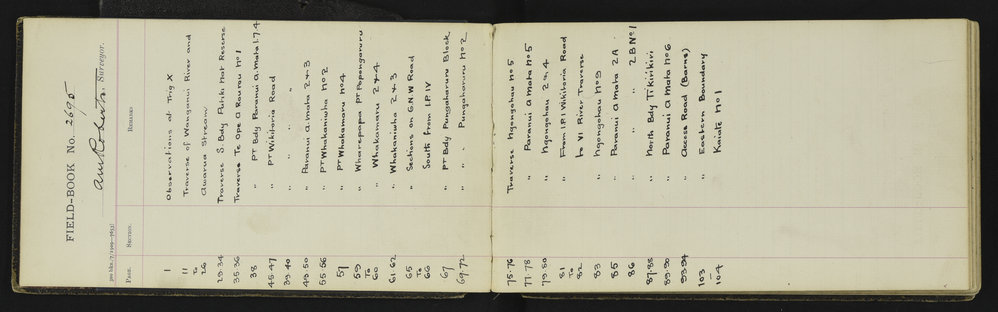 FIELD-BOOK No. 2695
Surveyor.
PAGE. SECTION. REMARKS
1 Observations at Trig X
11 Traverse of Wanganui River and
to Awarua Stream
26
29-34 Traverse S. Bdy Patiki Mat Reserve
35-36 Traverse Te Ope a Raurau No 1
38 " PT Bdy Paranui a Mata 1.7.4
45-47 " PT Wikitoria Road
39-40 " " "
49-50 " Paranui a Mata 2 & 3
55-56 " PT Whakaniwha No 2
57 " PT Whakamaru No 4
59 " Wharepapa PT Popongaruru
To " Whakamaru 2 & 4
60
61-62 " Whakaniwha 2 & 3
65 " Sections on G.N.W Road
To South from I.P. IV
66
67 " PT Bdy Pungaharuru Block
69-72 " " Pungaharuru No 2
75-76 Traverse Ngongohau No 5
77-78 " Paranui a Mata No 5
79-80 " Ngongohau 2 & 4
81 " From I.P. I Wikitoria Road
To to VI River Traverse
82
83 " Ngongohau No 3
85 " Paranui a Mata 2A
86 " " " 2B No 1
87-88 " North Bdy Tikirikiri
89-90 " Paranui a Mata No 6
93-94 " Access Road (Barns)
103 " Eastern Boundary
104 Kaiate No 1